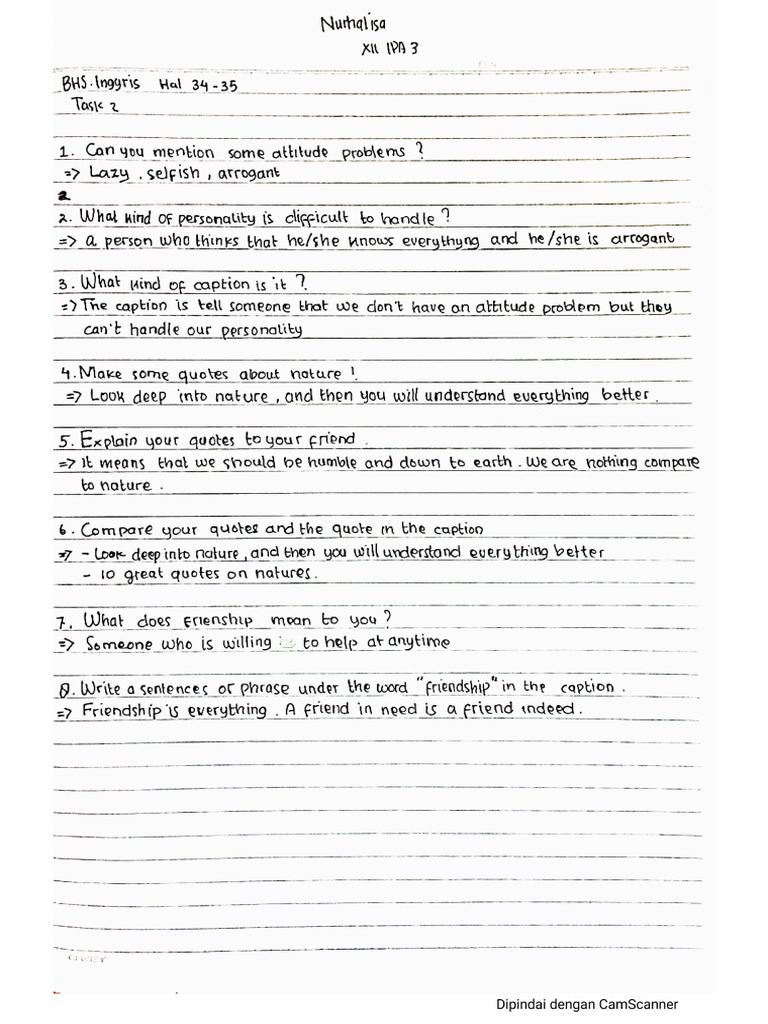 Nurhalisa
XII IPA 3
BHS. Inggris Hal 34-35
Task 2
1. Can you mention some attitude problems ?
=> Lazy , selfish , arrogant
2. What kind of personality is difficult to handle ?
=> a person who thinks that he/she knows everythyng and he/she is arrogant
3. What kind of caption is it ?
=> The caption is tell someone that we don't have an attitude problem but they
can't handle our personality
4. Make some quotes about nature !
=> Look deep into nature , and then you will understand everything better .
5. Explain your quotes to your friend .
=> it means that we should be humble and down to earth . We are nothing compare
to nature .
6. Compare your quotes and the quote in the caption
=> - Look deep into nature , and then you will understand everything better
- 10 great quotes on natures .
7. What does frienship mean to you ?
=> Someone who is willing to help at anytime
8. Write a sentences or phrase under the word "friendship" in the caption .
=> Friendship is everything . A friend in need is a friend indeed .
Dipindai dengan CamScanner